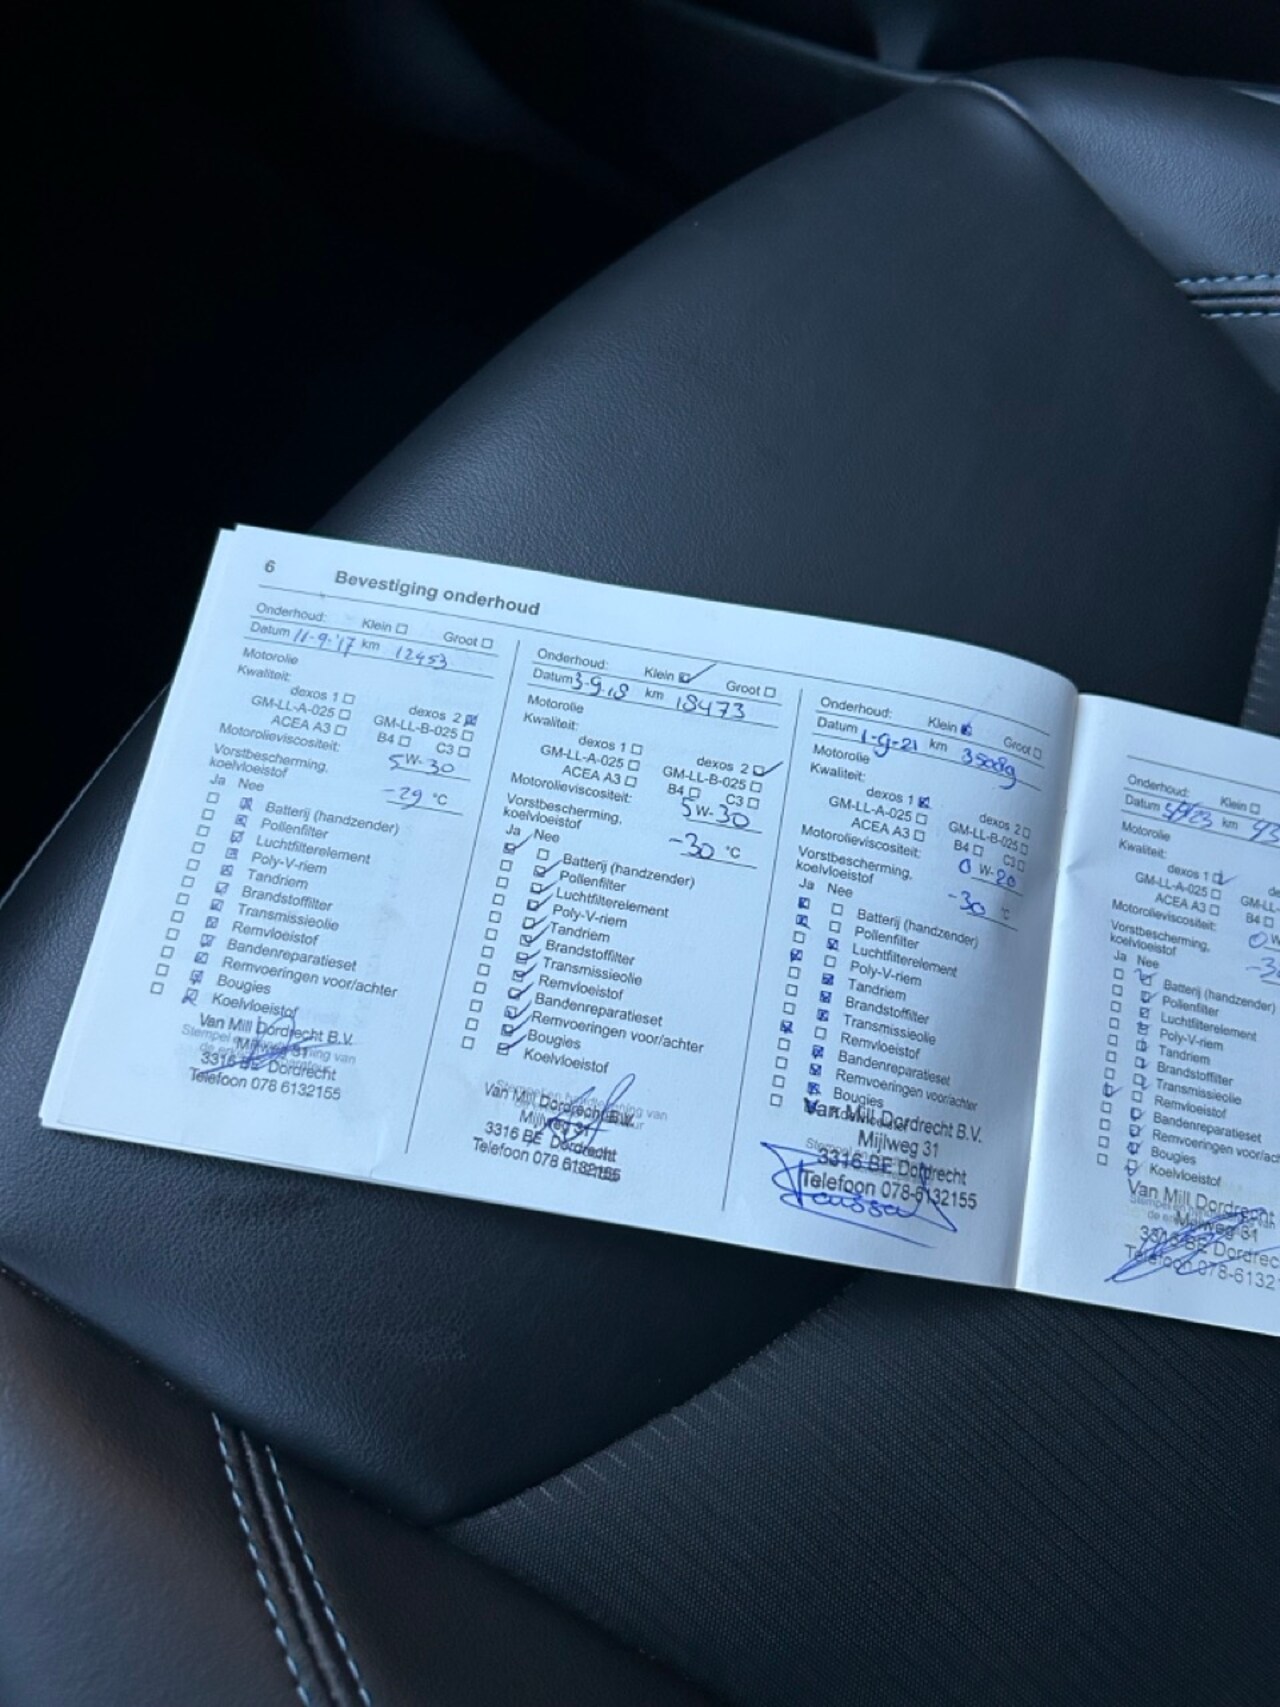 6 Bevestiging onderhoud
Onderhoud: Klein Groot
Datum 11-9-'17 km 12453
Motorolie
Kwaliteit:
dexos 1 dexos 2
GM-LL-A-025 GM-LL-B-025
ACEA A3 B4 C3
Motorolieviscositeit: 5 W-30
Vorstbescherming,
koelvloeistof -29 °C
Ja Nee
Batterij (handzender)
Pollenfilter
Luchtfilterelement
Poly-V-riem
Tandriem
Brandstoffilter
Transmissieolie
Remvloeistof
Bandenreparatieset
Remvoeringen voor/achter
Bougies
Koelvloeistof
Van Mill Dordrecht B.V.
Mijlweg 31
3316 BE Dordrecht
Telefoon 078 6132155
Onderhoud: Klein Groot
Datum 3-9-18 km 18473
Motorolie
Kwaliteit:
dexos 1 dexos 2
GM-LL-A-025 GM-LL-B-025
ACEA A3 B4 C3
Motorolieviscositeit: 5 W-30
Vorstbescherming,
koelvloeistof -30 °C
Ja Nee
Batterij (handzender)
Pollenfilter
Luchtfilterelement
Poly-V-riem
Tandriem
Brandstoffilter
Transmissieolie
Remvloeistof
Bandenreparatieset
Remvoeringen voor/achter
Bougies
Koelvloeistof
Van Mill Dordrecht B.V.
Mijlweg 31
3316 BE Dordrecht
Telefoon 078 6132155
Onderhoud: Klein Groot
Datum 1-9-21 km 35089
Motorolie
Kwaliteit:
dexos 1 dexos 2
GM-LL-A-025 GM-LL-B-025
ACEA A3 B4 C3
Motorolieviscositeit: 0 W-20
Vorstbescherming,
koelvloeistof -30 °C
Ja Nee
Batterij (handzender)
Pollenfilter
Luchtfilterelement
Poly-V-riem
Tandriem
Brandstoffilter
Transmissieolie
Remvloeistof
Bandenreparatieset
Remvoeringen voor/achter
Bougies
Van Mill Dordrecht B.V.
Mijlweg 31
3316 BE Dordrecht
Telefoon 078-6132155
Onderhoud: Klein
Datum km
Motorolie
Kwaliteit:
dexos 1
GM-LL-A-025 GM-LL-
ACEA A3 B4
Motorolieviscositeit: 0 W
Vorstbescherming,
koelvloeistof
Ja Nee
Batterij (handzender)
Pollenfilter
Luchtfilterelement
Poly-V-riem
Tandriem
Brandstoffilter
Transmissieolie
Remvloeistof
Bandenreparatieset
Remvoeringen voor/ac
Bougies
Koelvloeistof
Van Mill Dordrecht
Mijlweg 31
3316 BE Dordrec
Telefoon 078-6132